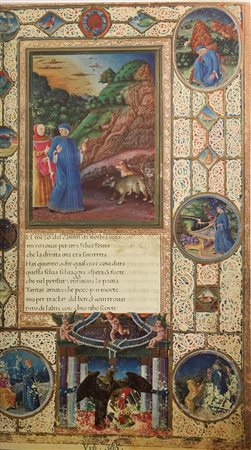 El mezo del camin di nostra uita
mi ritrouai per una selua scura
che la diritta uia era smarrita
Hai quanto adir qual era e cosa dura
questa selua aspra et forte
che nel pensier rinoua la paura
amara che poco piu morte
ma per tractar del ben trouai
diro cose scorte